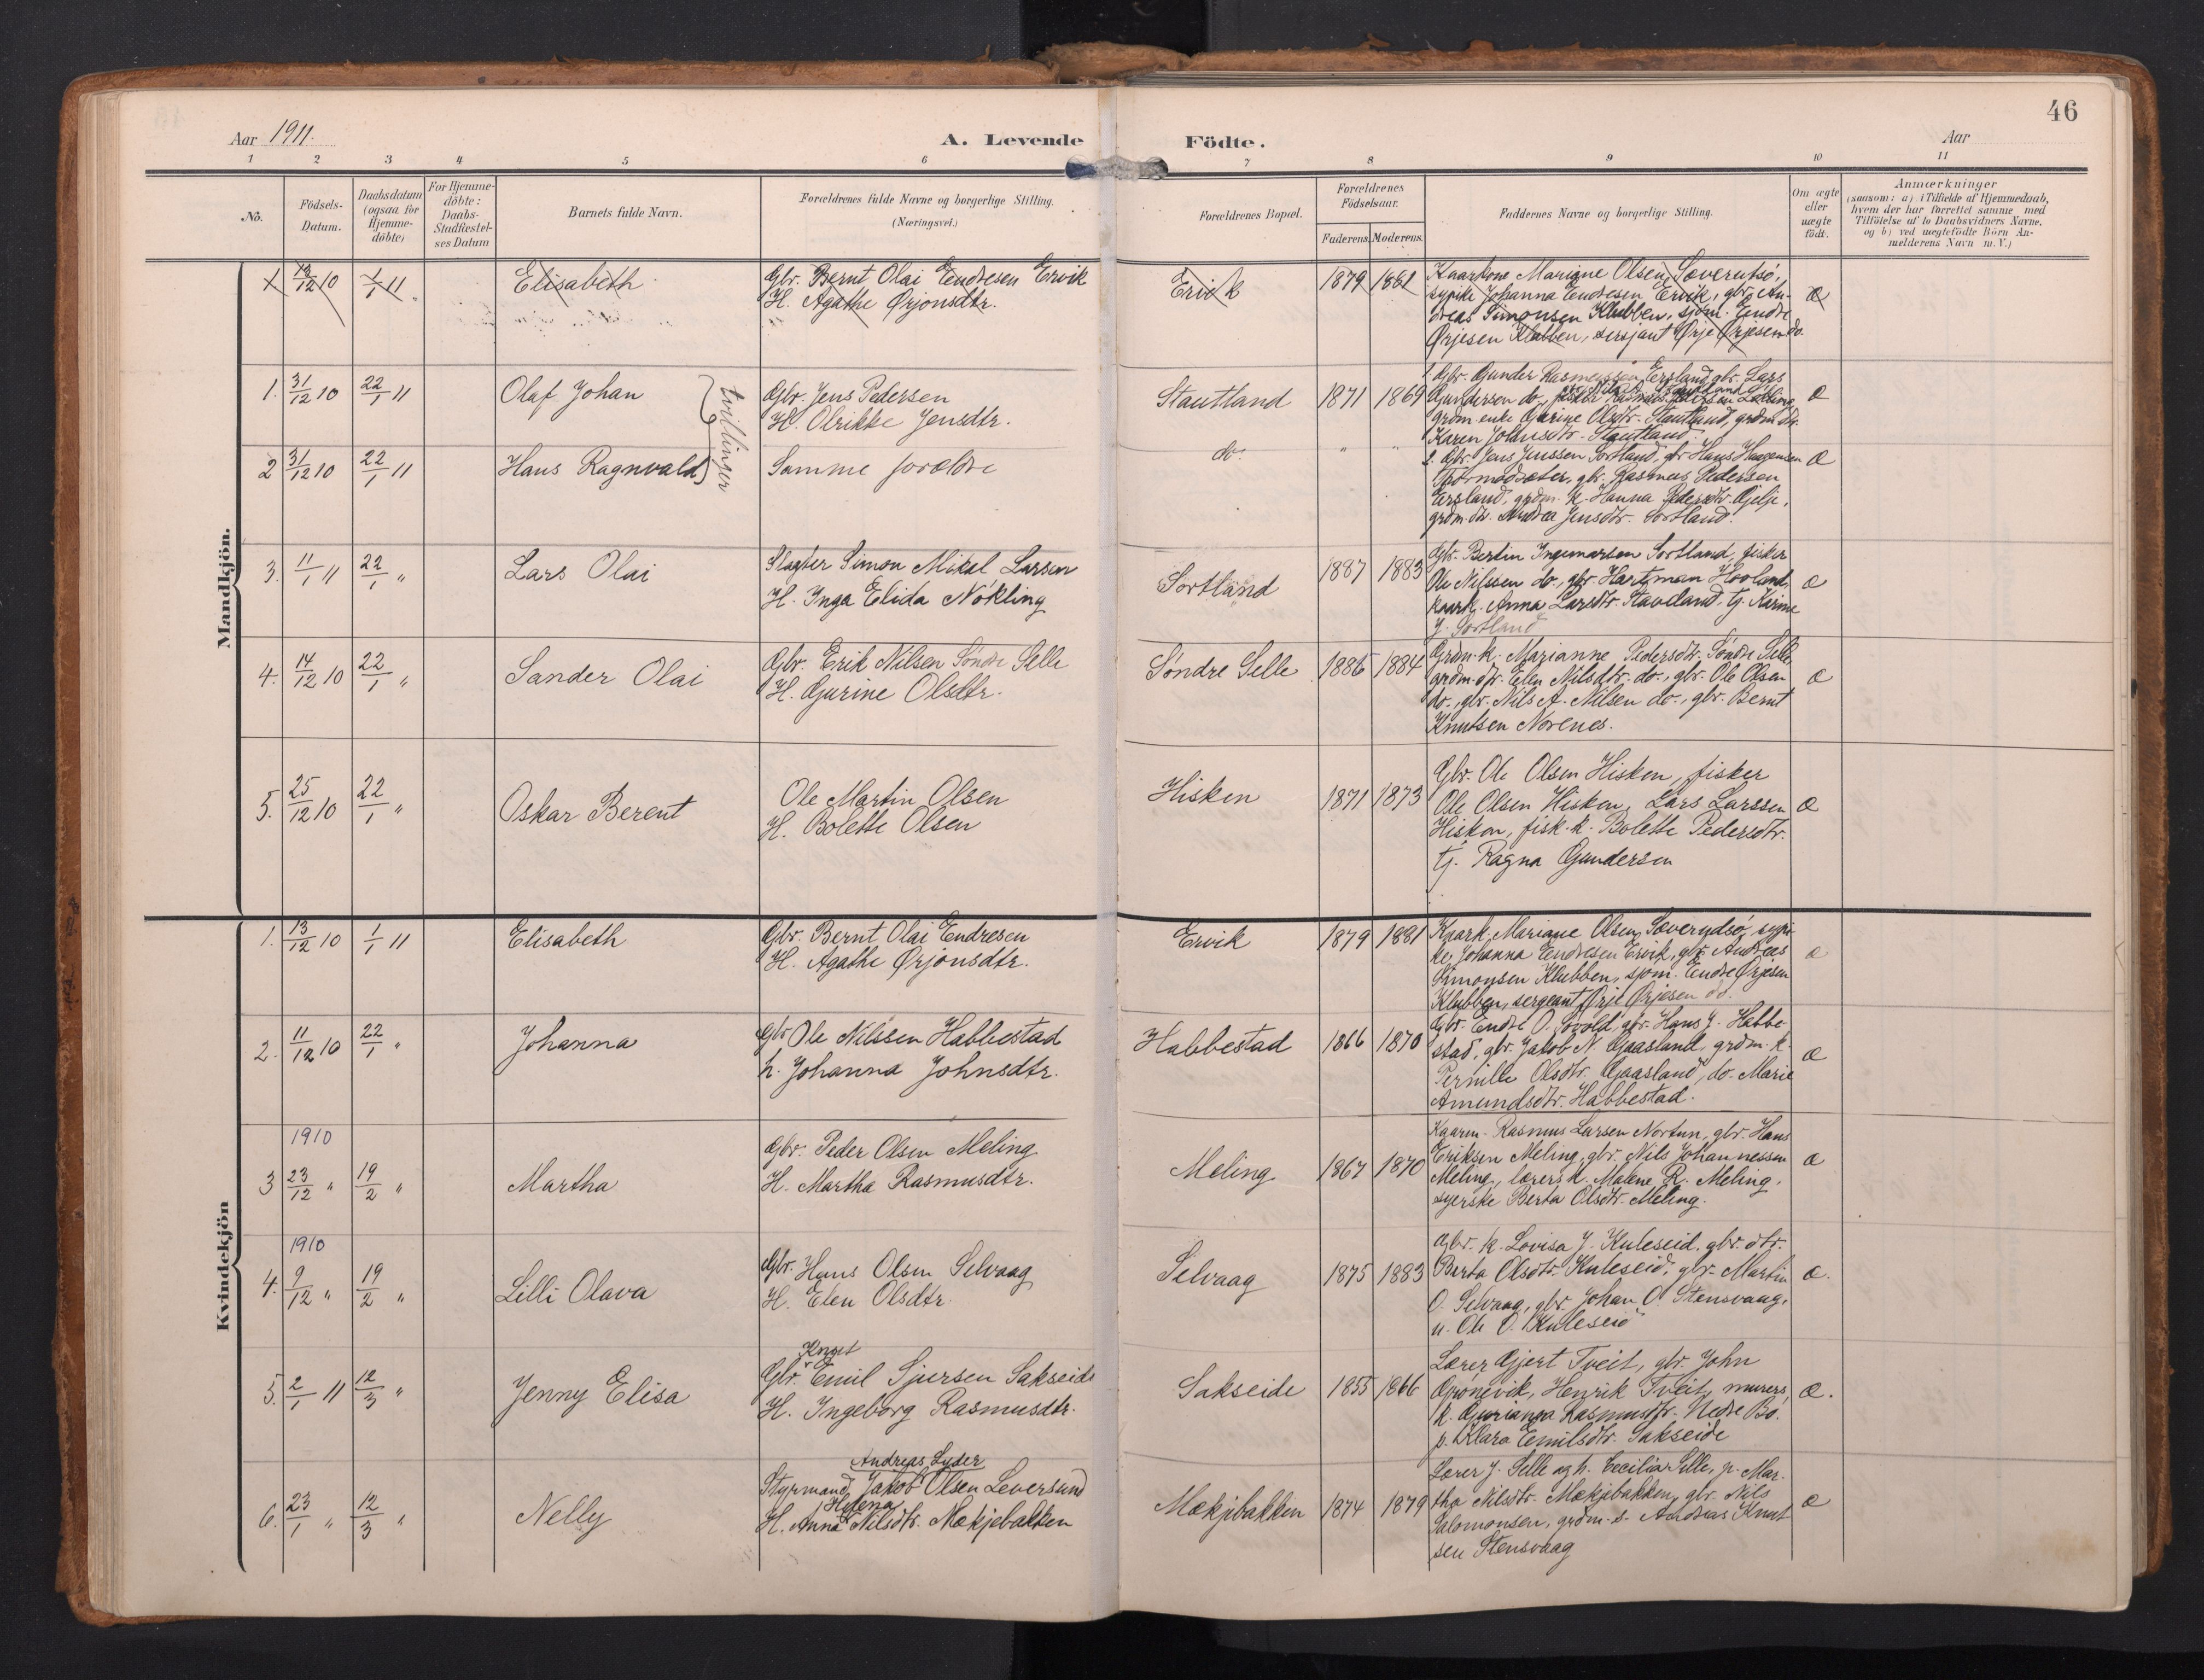 46
Aar 1911.
A. Levende Födte.
Aar
1 2 3 4 5 6 7 8 9 10 11
No.
Födsels-
Datum.
Daabsdatum
(ogsaa for
Hjemme-
döbte)
For Hjemme-
döbte:
Daabs-
Stadfæstel-
ses Datum
Barnets fulde Navn.
Forældrenes fulde Navne og borgerlige Stilling.
(Næringsvei.)
Forældrenes Bopæl.
Forældrenes
Födselsaar.
Faderens. Moderens.
Faddernes Navne og borgerlige Stilling.
Om ægte
eller
uægte
födt.
Anmærkninger
(saasom: a) i Tilfælde af Hjemmedaab,
hvem der har forrettet samme med
Tilföielse af to Daabsvidners Navne,
og b) ved uægtefödte Börn An-
melderens Navn m. V.)
Mandkjön.
1 13/12 10 1/1 11
Elisabeth
Gbr. Bernt Olai Endresen Ervik
H. Agathe Ørjonsdtr.
Ervik
1879 1861
Kaarkone Marigne Olsen,
sypike Johanna Endresen Ervik, gbr. An-
dreas Simonsen Klubben, sjøm. Endre
Ørjesen Klubben, sersjant Ørje Ørjesen do.
æ
1. 31/12 10 22/1 11
Olaf Johan
tvillinger
Gbr. Jens Pedersen
H. Olrikke Jensdtr.
Stautland
1871 1869
1. Gbr. Gunder Rasmussen Ersland, gbr. Lars
Gundersen do.,
grdm. enke Gurine Olsdtr. Stautland, grdm. dtr.
Karen Johnsdtr. Stautland.
æ
2 31/12 10 22/1 11
Hans Ragnvald
Samme forældre
do. " "
2. Gbr. Jens Jenssen Sortland, gbr. Hans Haagensen
Tormodsæter, gbr. Rasmus Pedersen
Ersland, grdm. k. Hanna Pedersdtr. Gjelje,
grdm. dtr. Andrea Jensdtr. Sortland.
æ
3. 11/1 11 22/1 "
Lars Olai
Slagter Simon Mikal Larsen
H. Inga Elida Nökling
Sortland
1887 1883
Gbr. Bertin Ingemarsen Sortland, fisker
Ole Nilssen do., gbr. Hartman Hooland,
kaark. Anna Larsdtr. Stavland. tj. Karine
J. Sortland
æ
4. 14/12 10 22/1 "
Sander Olai
Gbr. Erik Nilsen Söndre Selle
H. Gurine Olsdtr.
Söndre Selle
1886 1884
Grdm. k. Marianne Pedersdtr. Söndre Selle
grdm. dtr. Elen Nilsdtr. do., gbr. Ole Olsen
do., gbr. Nils A. Nilsen do., gbr. Bernt
Knutsen Norenes.
æ
5. 25/12 10 22/1 "
Oskar Berent
Ole Martin Olsen
H. Bolette Olsen
Hisken
1871 1873
Gbr. Ole Olsen Hisken, fisker
Ole Olsen Hisken, Lars Larssen
Hisken, fisk. k. Bolette Pedersdtr.
tj. Ragna Gundersen
æ
Kvindekjön
1. 13/12 10 1/1 11
Elisabeth
Gbr. Bernt Olai Endresen
H. Agathe Ørjonsdtr.
Ervik
1879 1881
Kaark. Marigne Olsen, sypi-
ke Johanna Endresen Ervik, gbr. Andreas
Simonsen Klubben, sjøm. Endre Ørjesen
Klubben, sergeant Ørje Ørjesen do.
æ
2. 11/12 10 22/1 "
Johanna
Gbr Ole Nilssen Habbestad
h. Johanna Johnsdtr.
Habbestad
1866 1870
Gbr. Endre O. Lovold, gbr. Hans J. Habbe-
stad, gbr. Jakob N. Gaasland, grdm. k.
Pernille Olsdtr. Gaasland, do. Marie
Amundsdtr. Habbestad.
æ
1910
3 23/12 " 19/2 "
Martha
Gbr. Peder Olsen Meling
H. Martha Rasmusdtr.
Meling
1867 1870
Kaarm. Rasmus Larsen Nortun, gbr. Hans
Eriksen Meling, gbr. Nils Johannessen
Meling, lærers k. Malene R. Meling,
syerske Berta Olsdtr. Meling.
æ
1910
4. 9/12 " 19/2 "
Lilli Olava
Gbr. Hans Olsen Selvaag
H. Elen Olsdtr.
Selvaag
1875 1883
Gbr. k. Lovisa J. Kuleseid, gbr. dtr.
Berta Olsdtr. Kuleseid, gbr. Martin
O. Selvaag, gbr. Johan O. Stensvaag,
u. Ole O. Kuleseid
æ.
5. 2/1 11 12/3 "
Jenny Elisa
Knut
Gbr. Emil Sjursen Sakseide
H. Ingeborg Rasmusdtr.
Sakseide
1855 1866
Lærer Gjert Tveit, gbr. John
Grönevik, Henrik Tveit, murers
k. Gurianna Rasmusdtr. Nedre Bö.
p. Klara Emilsdtr. Sakseide
æ.
6. 23/1 " 12/3 "
Nelly
Andreas Lyder
Styrmand Jakob Olsen Leversund
Helena
H. Anna Nilsdtr. Mækjebakken
Mækjebakken
1874 1879
Lærer J. Selle og h. Cecilia Selle, p. Mar-
tha Nilsdtr. Mækjebakken, gbr. Nils
Salomonsen, grdm. s. Andreas Knut
sen Stensvaag
æ